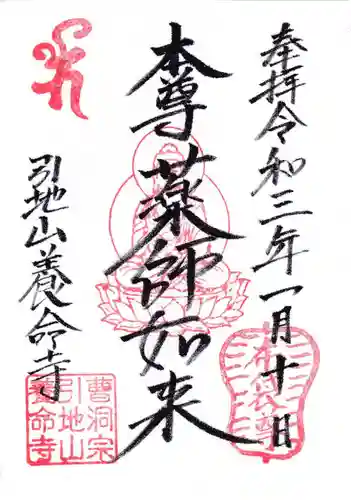 奉拝令和三年一月十日
本尊薬師如来
引地山養命寺
曹洞宗
引地山
養命寺
布袋尊